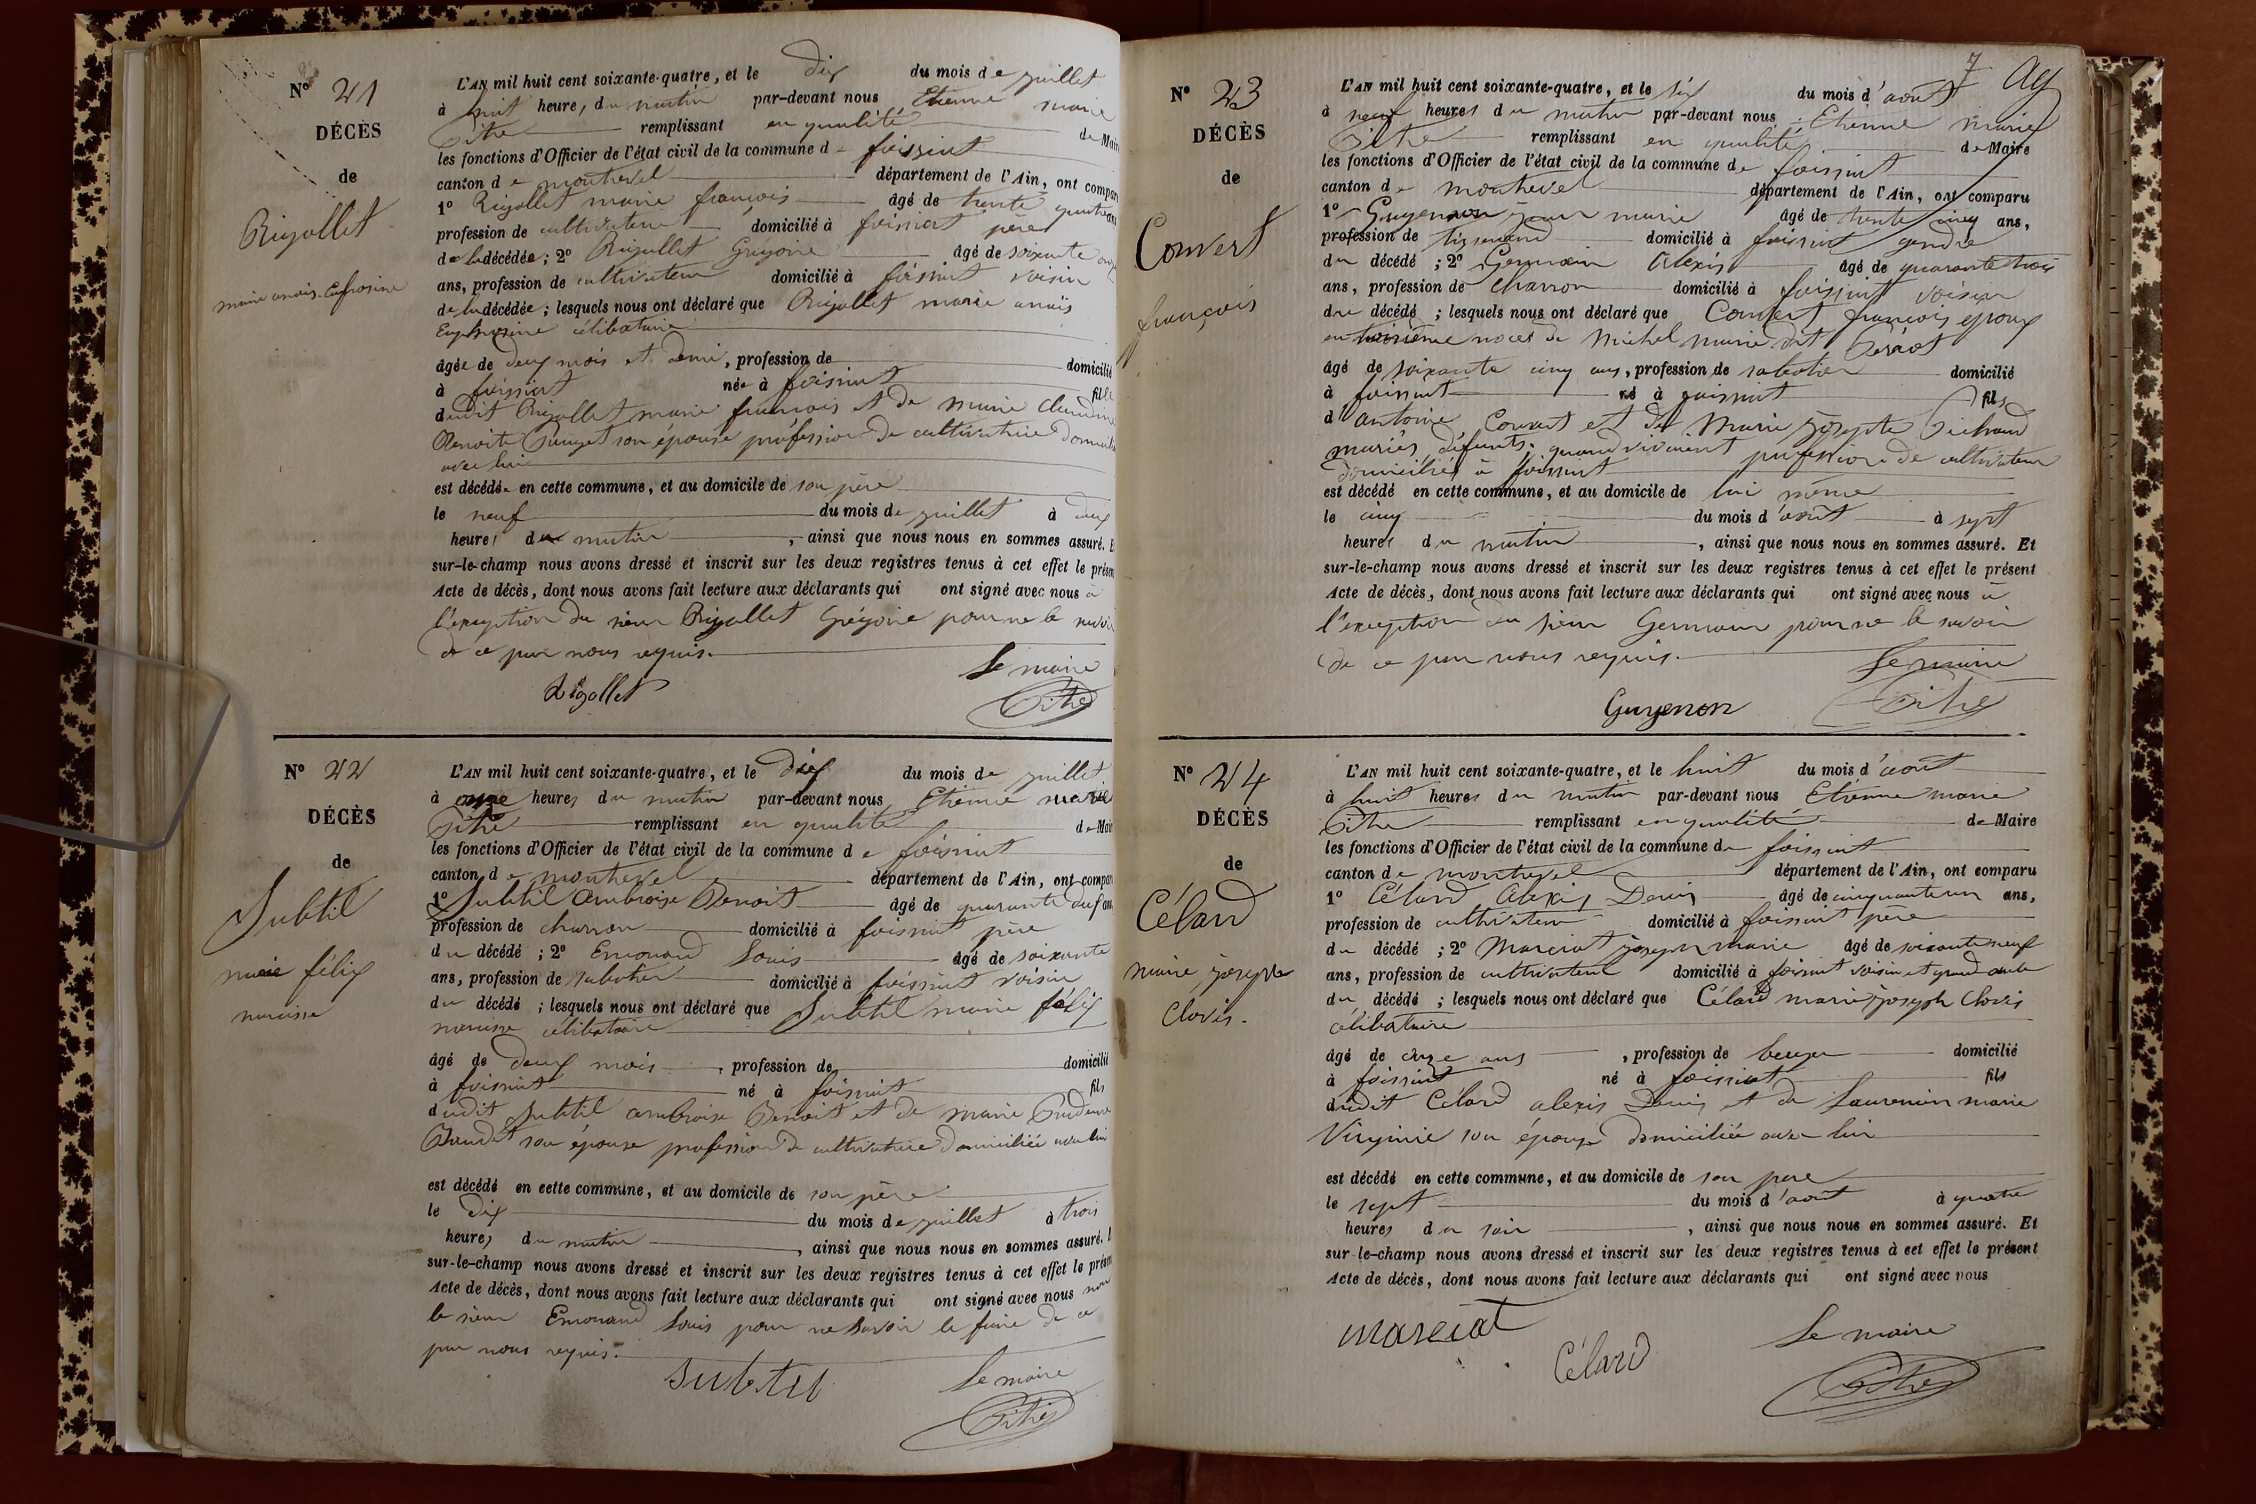 N° 21
DÉCÈS
de
Rigollet
marie anais Eufrosine
L'AN mil huit cent soixante-quatre, et le dix du mois de juillet
à huit heures du matin par-devant nous Etienne marie
Pitre remplissant en qualité de Maire
les fonctions d'Officier de l'état civil de la commune de foissiat
canton de montrevel département de l'Ain, ont comparu
1° Rigollet marie françois âgé de trente quatre ans
profession de cultivateur domicilié à foissiat père
de la décédée ; 2° Rigollet Grégoire âgé de soixante
ans, profession de cultivateur domicilié à foissiat voisin
de la décédée ; lesquels nous ont déclaré que Rigollet marie anaïs
Euphrosine célibataire
âgée de deux mois et demi, profession de domicilié
à foissiat née à foissiat fille
dudit Rigollet marie françois et de marie Claudine
Benoite son épouse profession de cultivatrice domiciliée
avec lui
est décédée en cette commune, et au domicile de son père
le neuf du mois de juillet à deux
heures du matin, ainsi que nous nous en sommes assuré. E
sur-le-champ nous avons dressé et inscrit sur les deux registres tenus à cet effet le présen
Acte de décès, dont nous avons fait lecture aux déclarants qui ont signé avec nous à
l'exception du sieur Rigollet Grégoire pour ne le savoir
de ce par nous requis.
Le maire
Rigollet Pitre
N° 22
DÉCÈS
de
Subtil
marie félix
narcisse
L'AN mil huit cent soixante-quatre, et le dix du mois de juillet
à onze heures du matin par-devant nous Etienne marie
Pitre remplissant en qualité de Maire
les fonctions d'Officier de l'état civil de la commune de foissiat
canton de montrevel département de l'Ain, ont comparu
1° Subtil Ambroise Benoit âgé de quarante deux ans
profession de charron domicilié à foissiat père
du décédé ; 2° Emonard Louis âgé de soixante
ans, profession de sabotier domicilié à foissiat voisin
du décédé ; lesquels nous ont déclaré que Subtil marie félix
narcisse célibataire
âgé de deux mois, profession de domicilié
à foissiat né à foissiat fils
dudit Subtil ambroise Benoit et de marie Prudence
son épouse profession de cultivatrice domiciliée avec lui
est décédé en cette commune, et au domicile de son père
le dix du mois de juillet à trois
heures du matin, ainsi que nous nous en sommes assuré.
sur-le-champ nous avons dressé et inscrit sur les deux registres tenus à cet effet le présen
Acte de décès, dont nous avons fait lecture aux déclarants qui ont signé avec nous non
le sieur Emonard Louis pour ne savoir le faire de ce
par nous requis.
Subtil Le maire
Pitre
7
N° 23
DÉCÈS
de
Convert
françois
L'AN mil huit cent soixante-quatre, et le six du mois d'août
à neuf heures du matin par-devant nous Etienne marie
Pitre remplissant en qualité de Maire
les fonctions d'Officier de l'état civil de la commune de foissiat
canton de montrevel département de l'Ain, ont comparu
1° Guyenon jean marie âgé de trente cinq ans,
profession de tisserand domicilié à foissiat gendre
du décédé ; 2° Germain Alexis âgé de quarante trois
ans, profession de charron domicilié à foissiat voisin
du décédé ; lesquels nous ont déclaré que Convert françois époux
en troisième noces de Michel marie dit
âgé de soixante cinq ans, profession de sabotier domicilié
à foissiat né à foissiat fils
d'antoine Convert et de Marie josepte Pichaud
mariés défunts quand vivaient profession de cultivateur
domiciliés à foissiat
est décédé en cette commune, et au domicile de lui même
le cinq du mois d'août à sept
heures du matin, ainsi que nous nous en sommes assuré. Et
sur-le-champ nous avons dressé et inscrit sur les deux registres tenus à cet effet le présent
Acte de décès, dont nous avons fait lecture aux déclarants qui ont signé avec nous à
l'exception du sieur Germain pour ne le savoir
de ce par nous requis.
Le maire
Guyenon Pitre
N° 24
DÉCÈS
de
Célard
marie joseph
Clovis.
L'AN mil huit cent soixante-quatre, et le huit du mois d'août
à huit heures du matin par-devant nous Etienne marie
Pitre remplissant en qualité de Maire
les fonctions d'Officier de l'état civil de la commune de foissiat
canton de montrevel département de l'Ain, ont comparu
1° Célard Alexis Denis âgé de cinquante un ans,
profession de cultivateur domicilié à foissiat père
du décédé ; 2° Marciat joseph marie âgé de soixante neuf
ans, profession de cultivateur domicilié à foissiat voisin et grand oncle
du décédé ; lesquels nous ont déclaré que Célard marie joseph Clovis
célibataire
âgé de onze ans, profession de domicilié
à foissiat né à foissiat fils
dudit Célard alexis Denis et de Laurencin marie
Virginie son épouse domiciliée avec lui
est décédé en cette commune, et au domicile de son père
le sept du mois d'août à quatre
heures du soir, ainsi que nous nous en sommes assuré. Et
sur-le-champ nous avons dressé et inscrit sur les deux registres tenus à cet effet le présent
Acte de décès, dont nous avons fait lecture aux déclarants qui ont signé avec nous
marciat Le maire
Célard Pitre